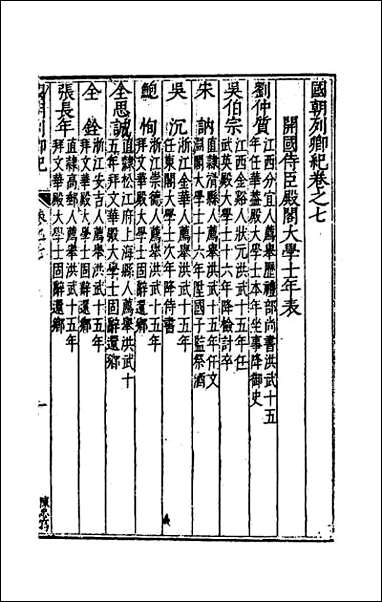 國朝列卿紀卷之七
開國侍臣殿閣大學士年表
劉仲質 江西分宜人薦舉歷禮部尚書洪武十五
年任華蓋殿大學士本年坐事降御史
吳伯宗 江西金谿人狀元洪武十五年任
武英殿大學士十六年降檢討卒
宋訥 直隷滑縣人薦舉洪武十五年任文
淵閣大學士十六年陞國子監祭酒
吳沉 浙江金華人薦舉洪武十五年
任東閣大學士久年降侍書
鮑恂 浙江崇德人薦舉洪武十五年
拜文華殿大學士固辭還鄉
全思誠 直隷松江府上海縣人薦舉洪武十
五年拜文華殿大學士固辭還鄉
全銓 浙江安吉人薦舉洪武十五年
拜文華殿大學士固辭還鄉
張長年 直隷高郵人薦舉洪武十五年
拜文華殿大學士固辭還鄉
國朝列卿紀
卷之七
一